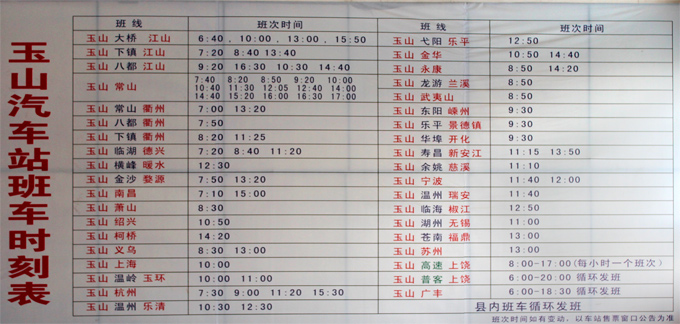 玉山汽车站班车时刻表
班线 班次时间
玉山 大桥 江山 6:40 , 10:00 , 13:00 , 15:50
玉山 下镇 江山 7:20 8:40 13:40
玉山 八都 江山 9:20 16:30 10:30 14:40
玉山 常山 7:40 8:20 8:50 9:20 10:00
10:40 11:30 12:05 12:40 14:00
14:40 15:20 16:00 16:30 17:00
玉山 常山 衢州 7:00 13:20
玉山 八都 衢州 7:50
玉山 下镇 衢州 8:20 11:25
玉山 临湖 德兴 7:20 8:40 11:20
玉山 横峰 暖水 12:30
玉山 金沙 婺源 7:50 13:20
玉山 南昌 7:10 15:00
玉山 萧山 8:30
玉山 绍兴 10:50
玉山 柯桥 14:20
玉山 义乌 8:30 13:00
玉山 上海 10:00
玉山 温岭 玉环 10:00 11:00
玉山 杭州 7:30 9:00 11:20 15:30
玉山 温州 乐清 10:30 12:30
班线 班次时间
玉山 弋阳 乐平 12:50
玉山 金华 10:50 14:40
玉山 永康 8:50 14:20
玉山 龙游 兰溪 8:50
玉山 武夷山 8:50
玉山 东阳 嵊州 9:30
玉山 乐平 景德镇 9:30
玉山 华埠 开化 9:30
玉山 寿昌 新安江 11:15 13:50
玉山 余姚 慈溪 11:10
玉山 宁波 11:40 12:00
玉山 温州 瑞安 11:40
玉山 临海 椒江 12:50
玉山 湖州 无锡 11:00
玉山 苍南 福鼎 13:00
玉山 苏州 13:00
玉山 高速 上饶 8:00-17:00(每小时一个班次)
玉山 普客 上饶 6:00-20:00 循环发班
玉山 广丰 6:00-18:30 循环发班
县内班车循环发班
班次时间如有变动，以车站售票窗口公告为准